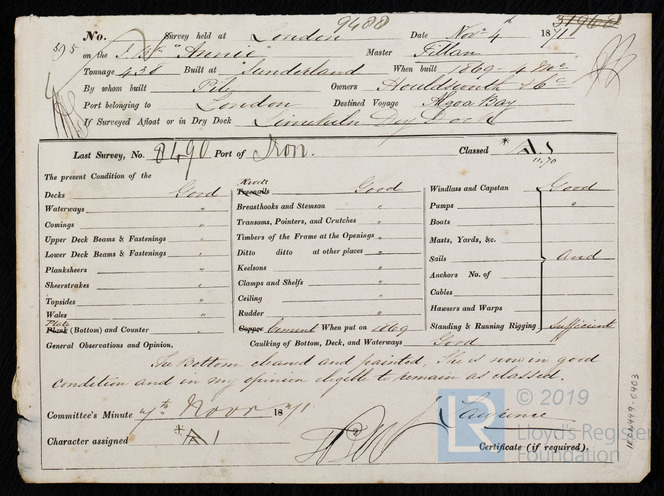 9488
31960
No. 595 Survey held at London Date Novr. 4th 1871
on the "Annie" Master Fillan
Tonnage 438 Built at Sunderland When built 1869-4 mo
By whom built Pile Owners Houldsworth & Co
Port belonging to London Destined Voyage Algoa Bay
If Surveyed Afloat or in Dry Dock Limekiln Dry Dock
Last Survey, No. 8490 Port of Iron. Classed A 1
11,70
The present Condition of the
Decks Good
Waterways "
Comings "
Upper Deck Beams & Fastenings "
Lower Deck Beams & Fastenings "
Planksheers "
Sheerstrakes "
Topsides "
Wales "
Plate
Plank (Bottom) and Counter "
Rivets
Treenails Good
Breasthooks and Stemson "
Transoms, Pointers, and Crutches "
Timbers of the Frame at the Openings "
Ditto ditto at other places "
Keelsons "
Clamps and Shelfs "
Ceiling "
Rudder "
Copper Cement When put on 1869
Windlass and Capstan Good
Pumps "
Boats
Masts, Yards, &c.
Sails and
Anchors No. of
Cables
Hawsers and Warps
Standing & Running Rigging Sufficient
General Observations and Opinion, Caulking of Bottom, Deck, and Waterways Good
The Bottom cleaned and painted, She is now in good
condition and in my opinion eligible to remain as classed.
Committee's Minute 7th Novr 1871
J. Lawrence
Character assigned A 1
Certificate (if required).
© 2019
LR
Lloyd's Register
Foundation